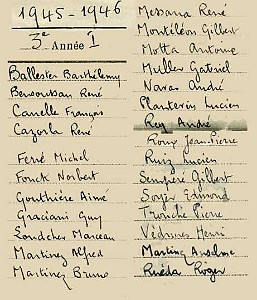 1945-1946
3e Année I
Ballester Barthélemy
Bensoussan René
Canelle François
Cazorla René
Ferré Michel
Fonck Norbert
Gonthière Aimé
Graciani Guy
Londcher Marceau
Martinez Alfred
Martinez Bruno
Messana René
Montéléon Gilbert
Motta Antoine
Muller Gabriel
Navas André
Planterin Lucien
Rey André
Roux Jean Pierre
Ruiz Lucien
Sempéré Gilbert
Soyer Edmond
Tronche Pierre
Védrines Henri
Martinez Anselme
Rueda Roger